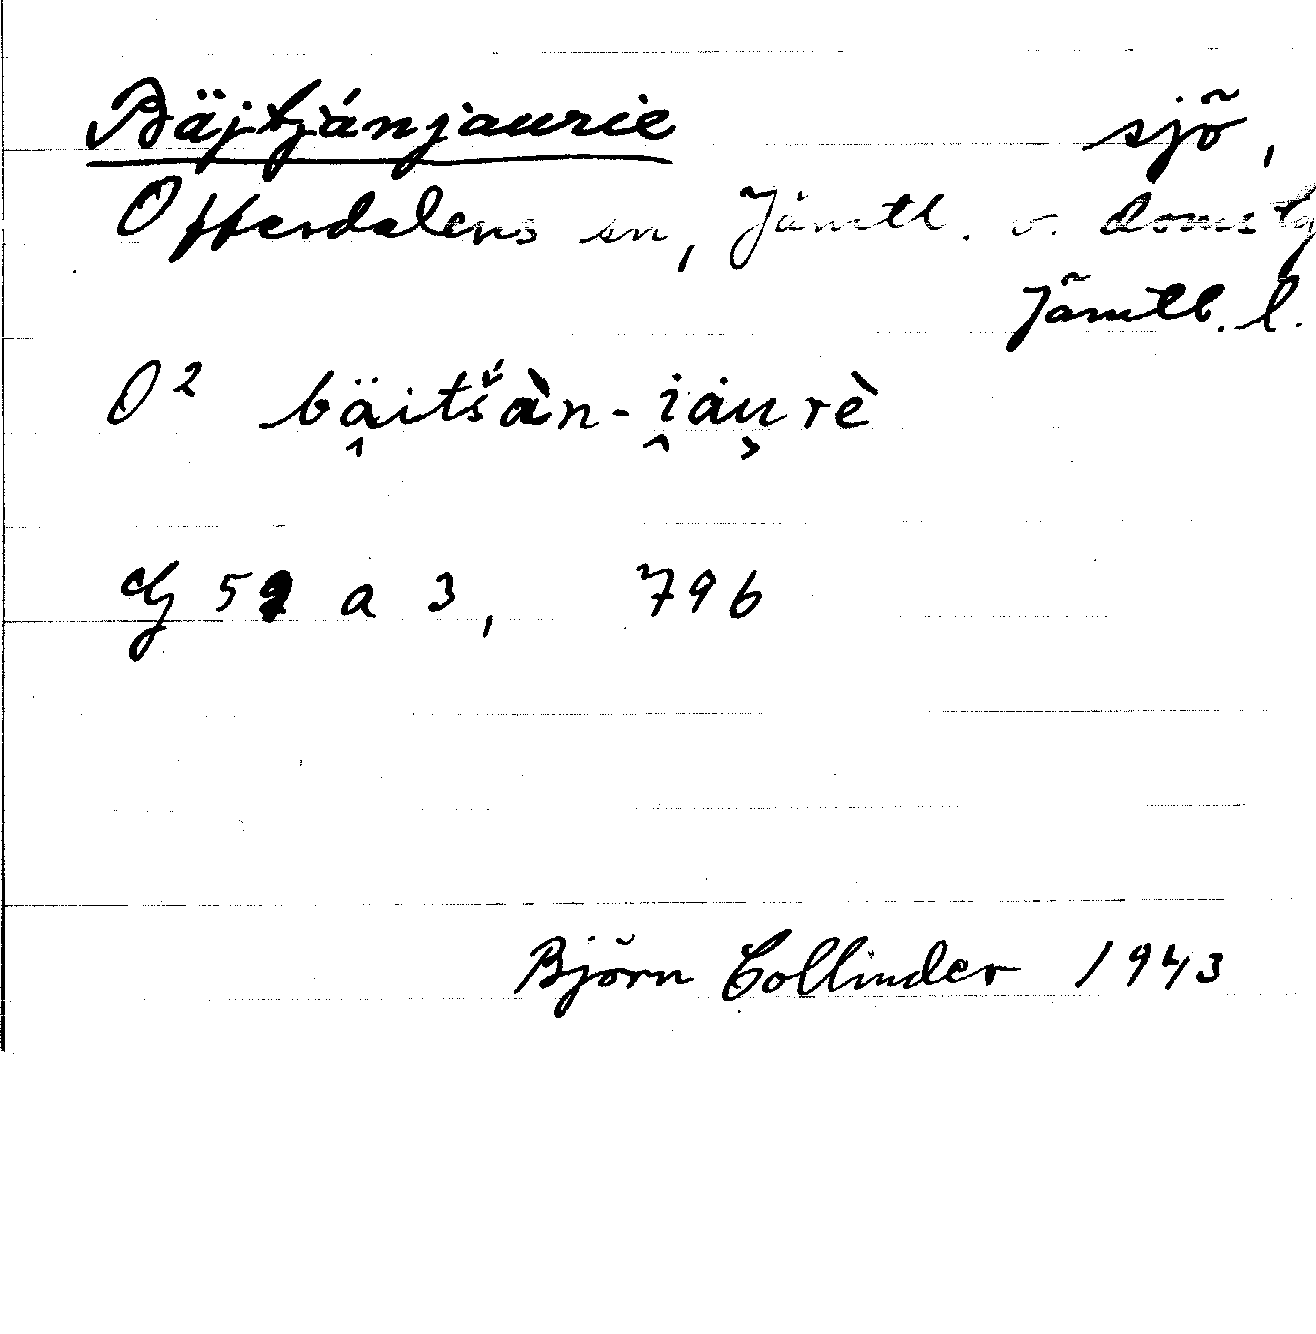 Bäjtjánjaurie sjö,
Offerdalens sn, Jämtl. v. doms lg
Jämtl. l.
O² bä̭itšàn-i̭au̯rè
G 52 a 3, 796
Björn Collinder 1943